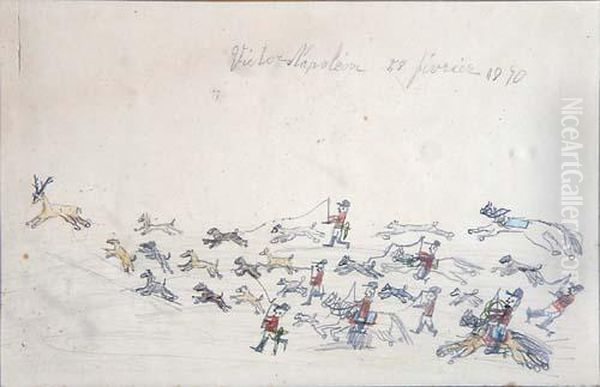 Victor Napoléon 28 février 1870
NiceArtGallery